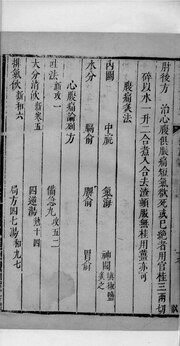 肘後方 治心腹俱脹痛短氣欲死或已絶者用官桂三兩切
碎以水一升二合煮八合去渣頓服無桂用薑亦可
腹痛灸法
內關 中脘 氣海 神闕
水分 膈俞 脾俞 胃俞
心腹痛論列方
吐法新攻一 備急丸攻五二
大分清飲新寒五 四逆湯熱十四
排氣飲新和六 局方四七湯和九七